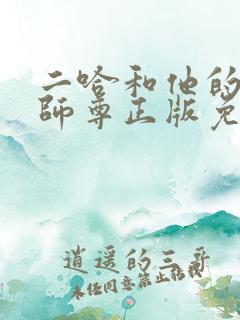 二哈和他的
師尊正版免
逍遥的三哥
未经同意禁止转载